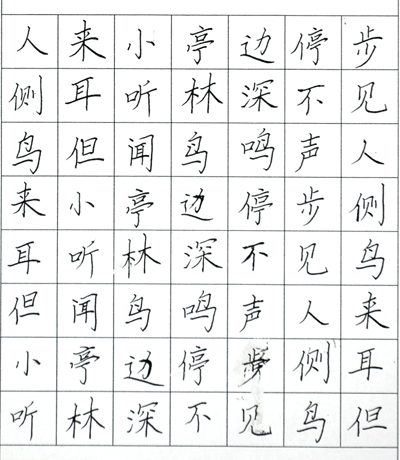 人来小亭边停步
侧耳听林深不见
鸟但闻鸟鸣声人
来小亭边停步侧
耳听林深不见鸟
但闻鸟鸣声人来
小亭边停步侧耳
听林深不见鸟但